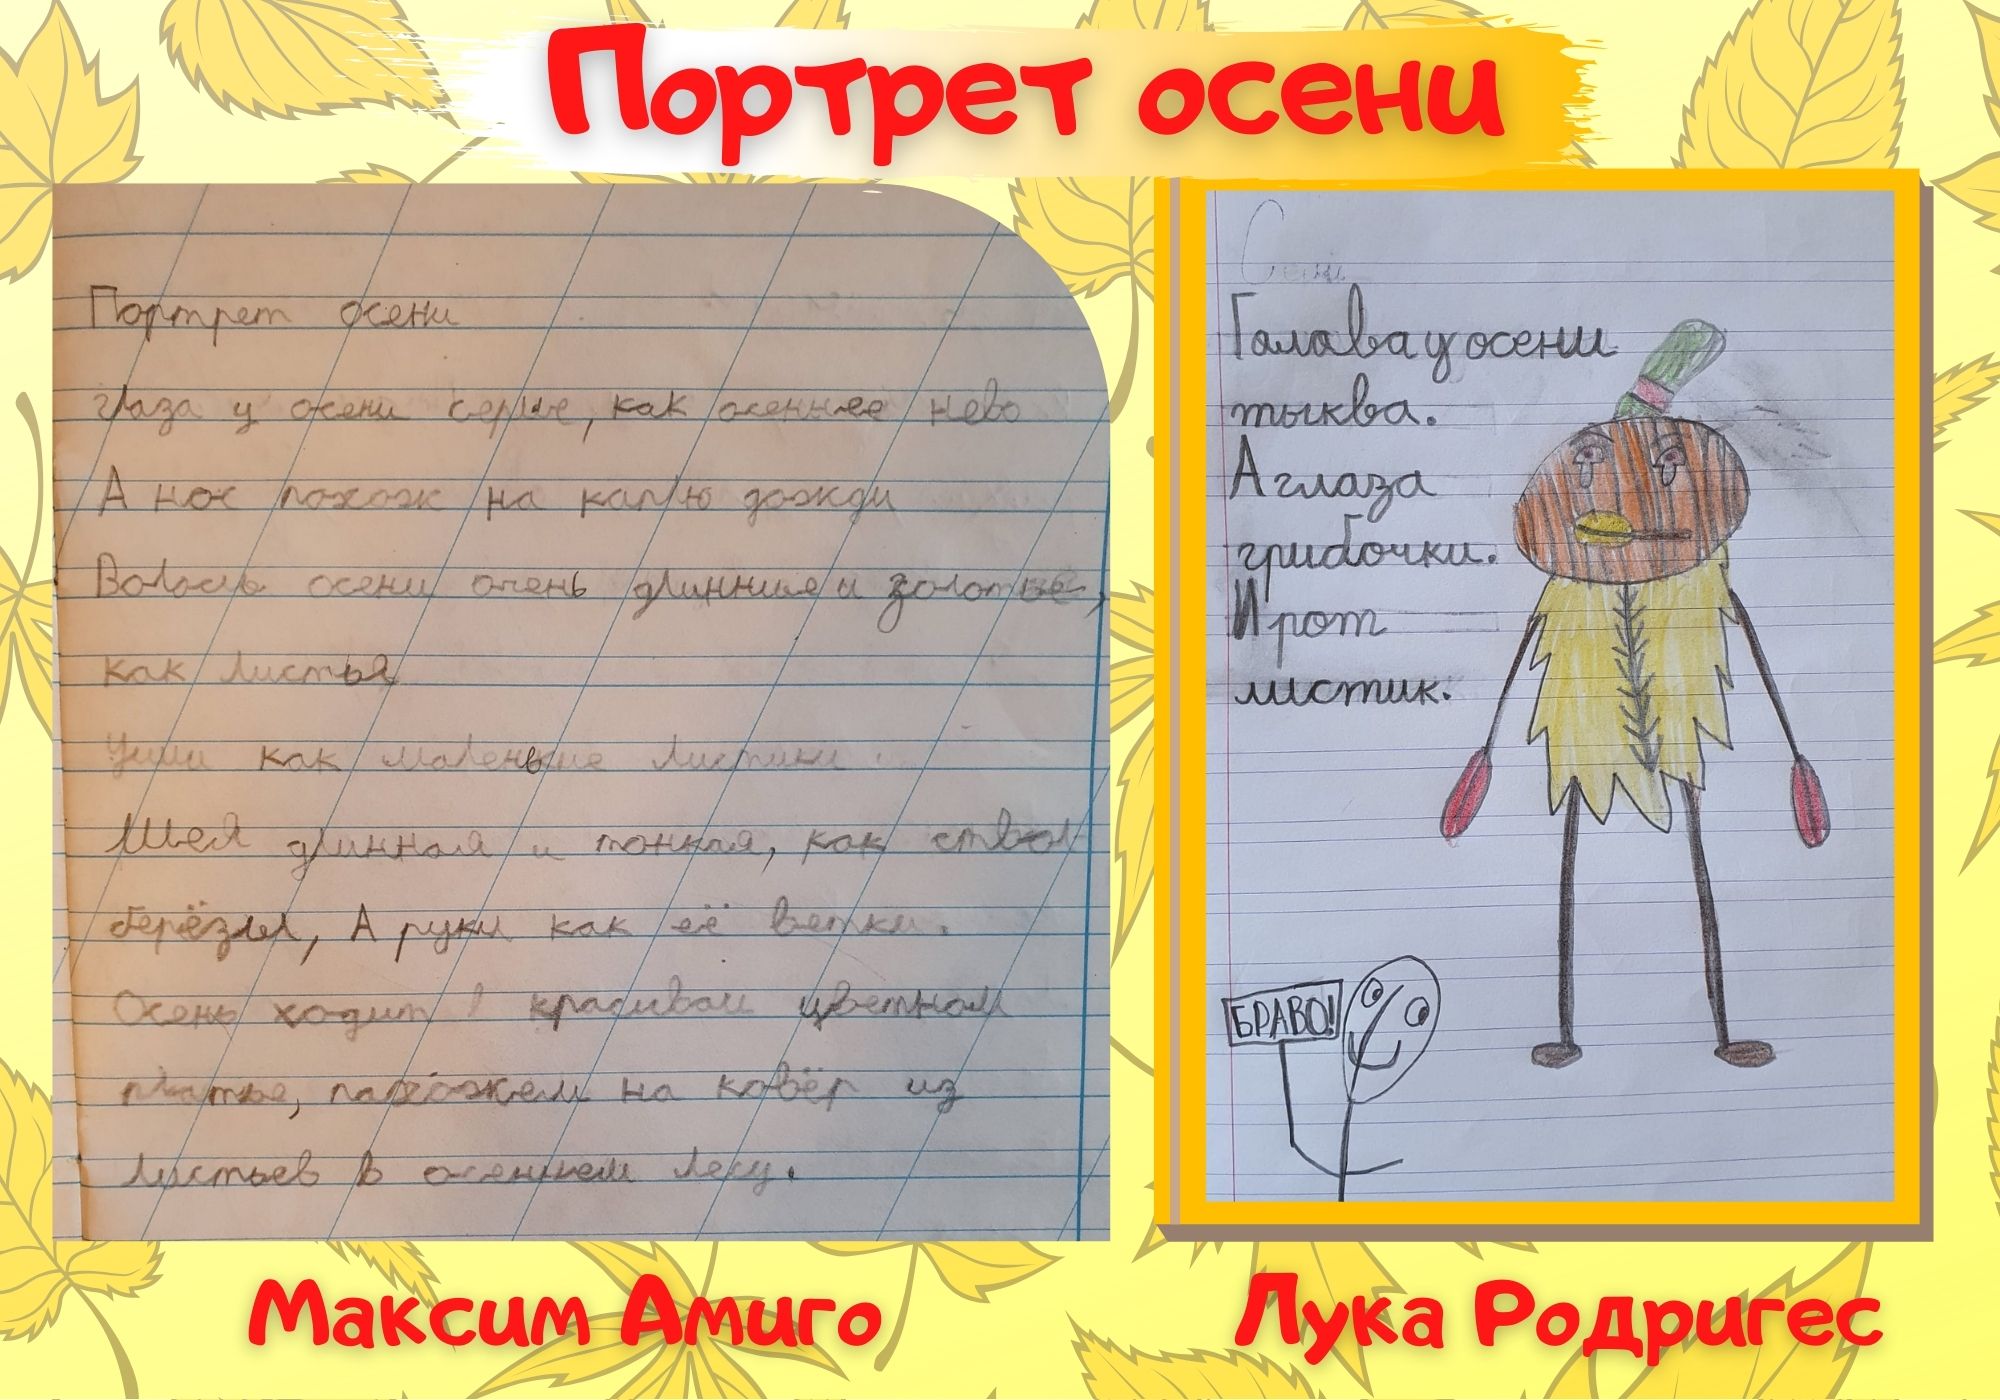 Портрет осени
Портрет осени
глаза у осени серые, как осеннее небо
А нос похож на каплю дожди
Волосы осени очень длинные и золотые,
как листья
Уши как маленькие листики.
Шея длинная и тонкая, как ствол
берёзы, А руки как её ветки.
Осень ходит в красивом цветном
платье, похожем на ковёр из
листьев в осеннем лесу.
Голова у осени
тыква.
А глаза
грибочки.
И рот
листик.
БРАВО!
Максим Амиго
Лука Родригес